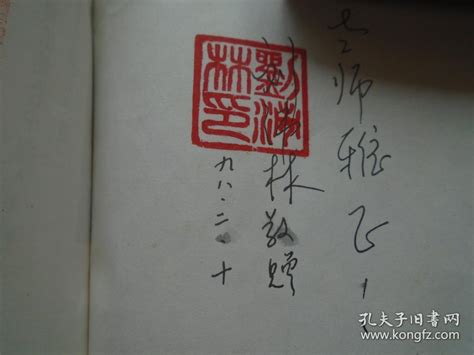 老师雅正
林敬赠
九八.二.十
林印
孔夫子旧书网
www.kongfz.com